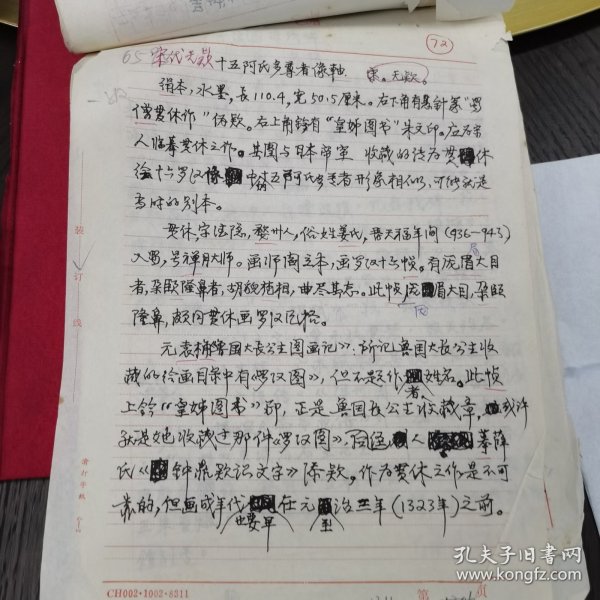 72
65 宋代无款 十五阿氏多尊者像轴. 宋。无款。
绢本,水墨,長110.4,宽50.5厘米。右下角有悬针篆"蜀
僧贯休作"伪款。右上角钤有"皇姊图书"朱文印。应为宋
人临摹贯休之作。其图与日本帝室 收藏的传为贯休
绘十六罗汉 中 十五阿氏多尊者形像相似,可能就是
当时的副本。
贯休,字法隐,婺州人,俗姓姜氏,晋天福年间(936—943)
入蜀,号禅月大师。画师阎立本,画罗汉十六帧。有庞眉大目
者,朵颐隆鼻者,胡貌梵相,曲尽其态。此帧 眉大目,朵颐
隆鼻,颇同贯休画罗汉风格。
元袁桷《鲁国大长公主图画记》:所记鲁国大长公主收
藏的绘画目录中有《罗汉图》,但不题作者姓名。此帧
上钤"皇姊图书"印,正是鲁国大长公主收藏章,或许
就是她收藏过那件《罗汉图》。 人 摹薛
氏《 钟鼎款识文字》添款,作为贯休之作是不可
靠的,但画成年代也要早在元至治三年(1323年)之前。
装
订
线
CH002·1002·8311
第 页
孔夫子旧书网
book.kongfz.com